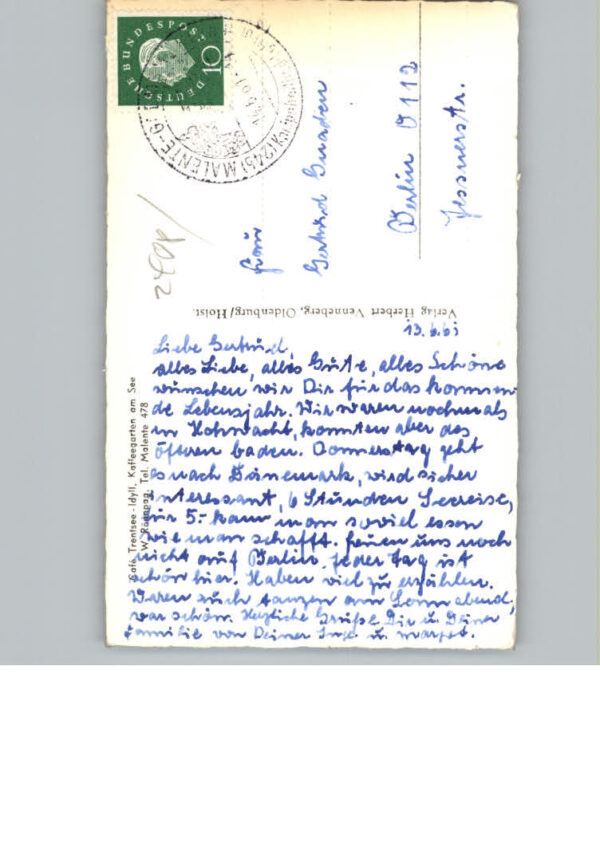 DEUTSCHE BUNDESPOST
10
(24b) MALENTE-G
2408/
Frau
Gertrud Gnaden
Berlin O 112
Jessnerstr.
Verlag Herbert Venneberg, Oldenburg/Holst.
Café Trentsee-Idyll, Kaffeegarten am See
Tel. Malente 478
13.6.61
Liebe Gertrud,
alles Liebe, alles Gute, alles Schöne
wünschen wir Dir für das kommen
de Lebensjahr. Wir waren nochmals
in Hohwacht, konnten aber das
öfteren baden. Donnerstag geht
es nach Dänemark, wird sicher
interessant, 6 Stunden Seereise,
für 5.- kann man soviel essen
wie man schafft. freuen uns noch
nicht auf Berlin. Jeder Tag ist
schön hier. Haben viel zu erzählen.
Waren auch tanzen am Sonnabend,
war schön. Herzliche Grüße Dir u. Deiner
Familie von Deiner Inge u. Margot.